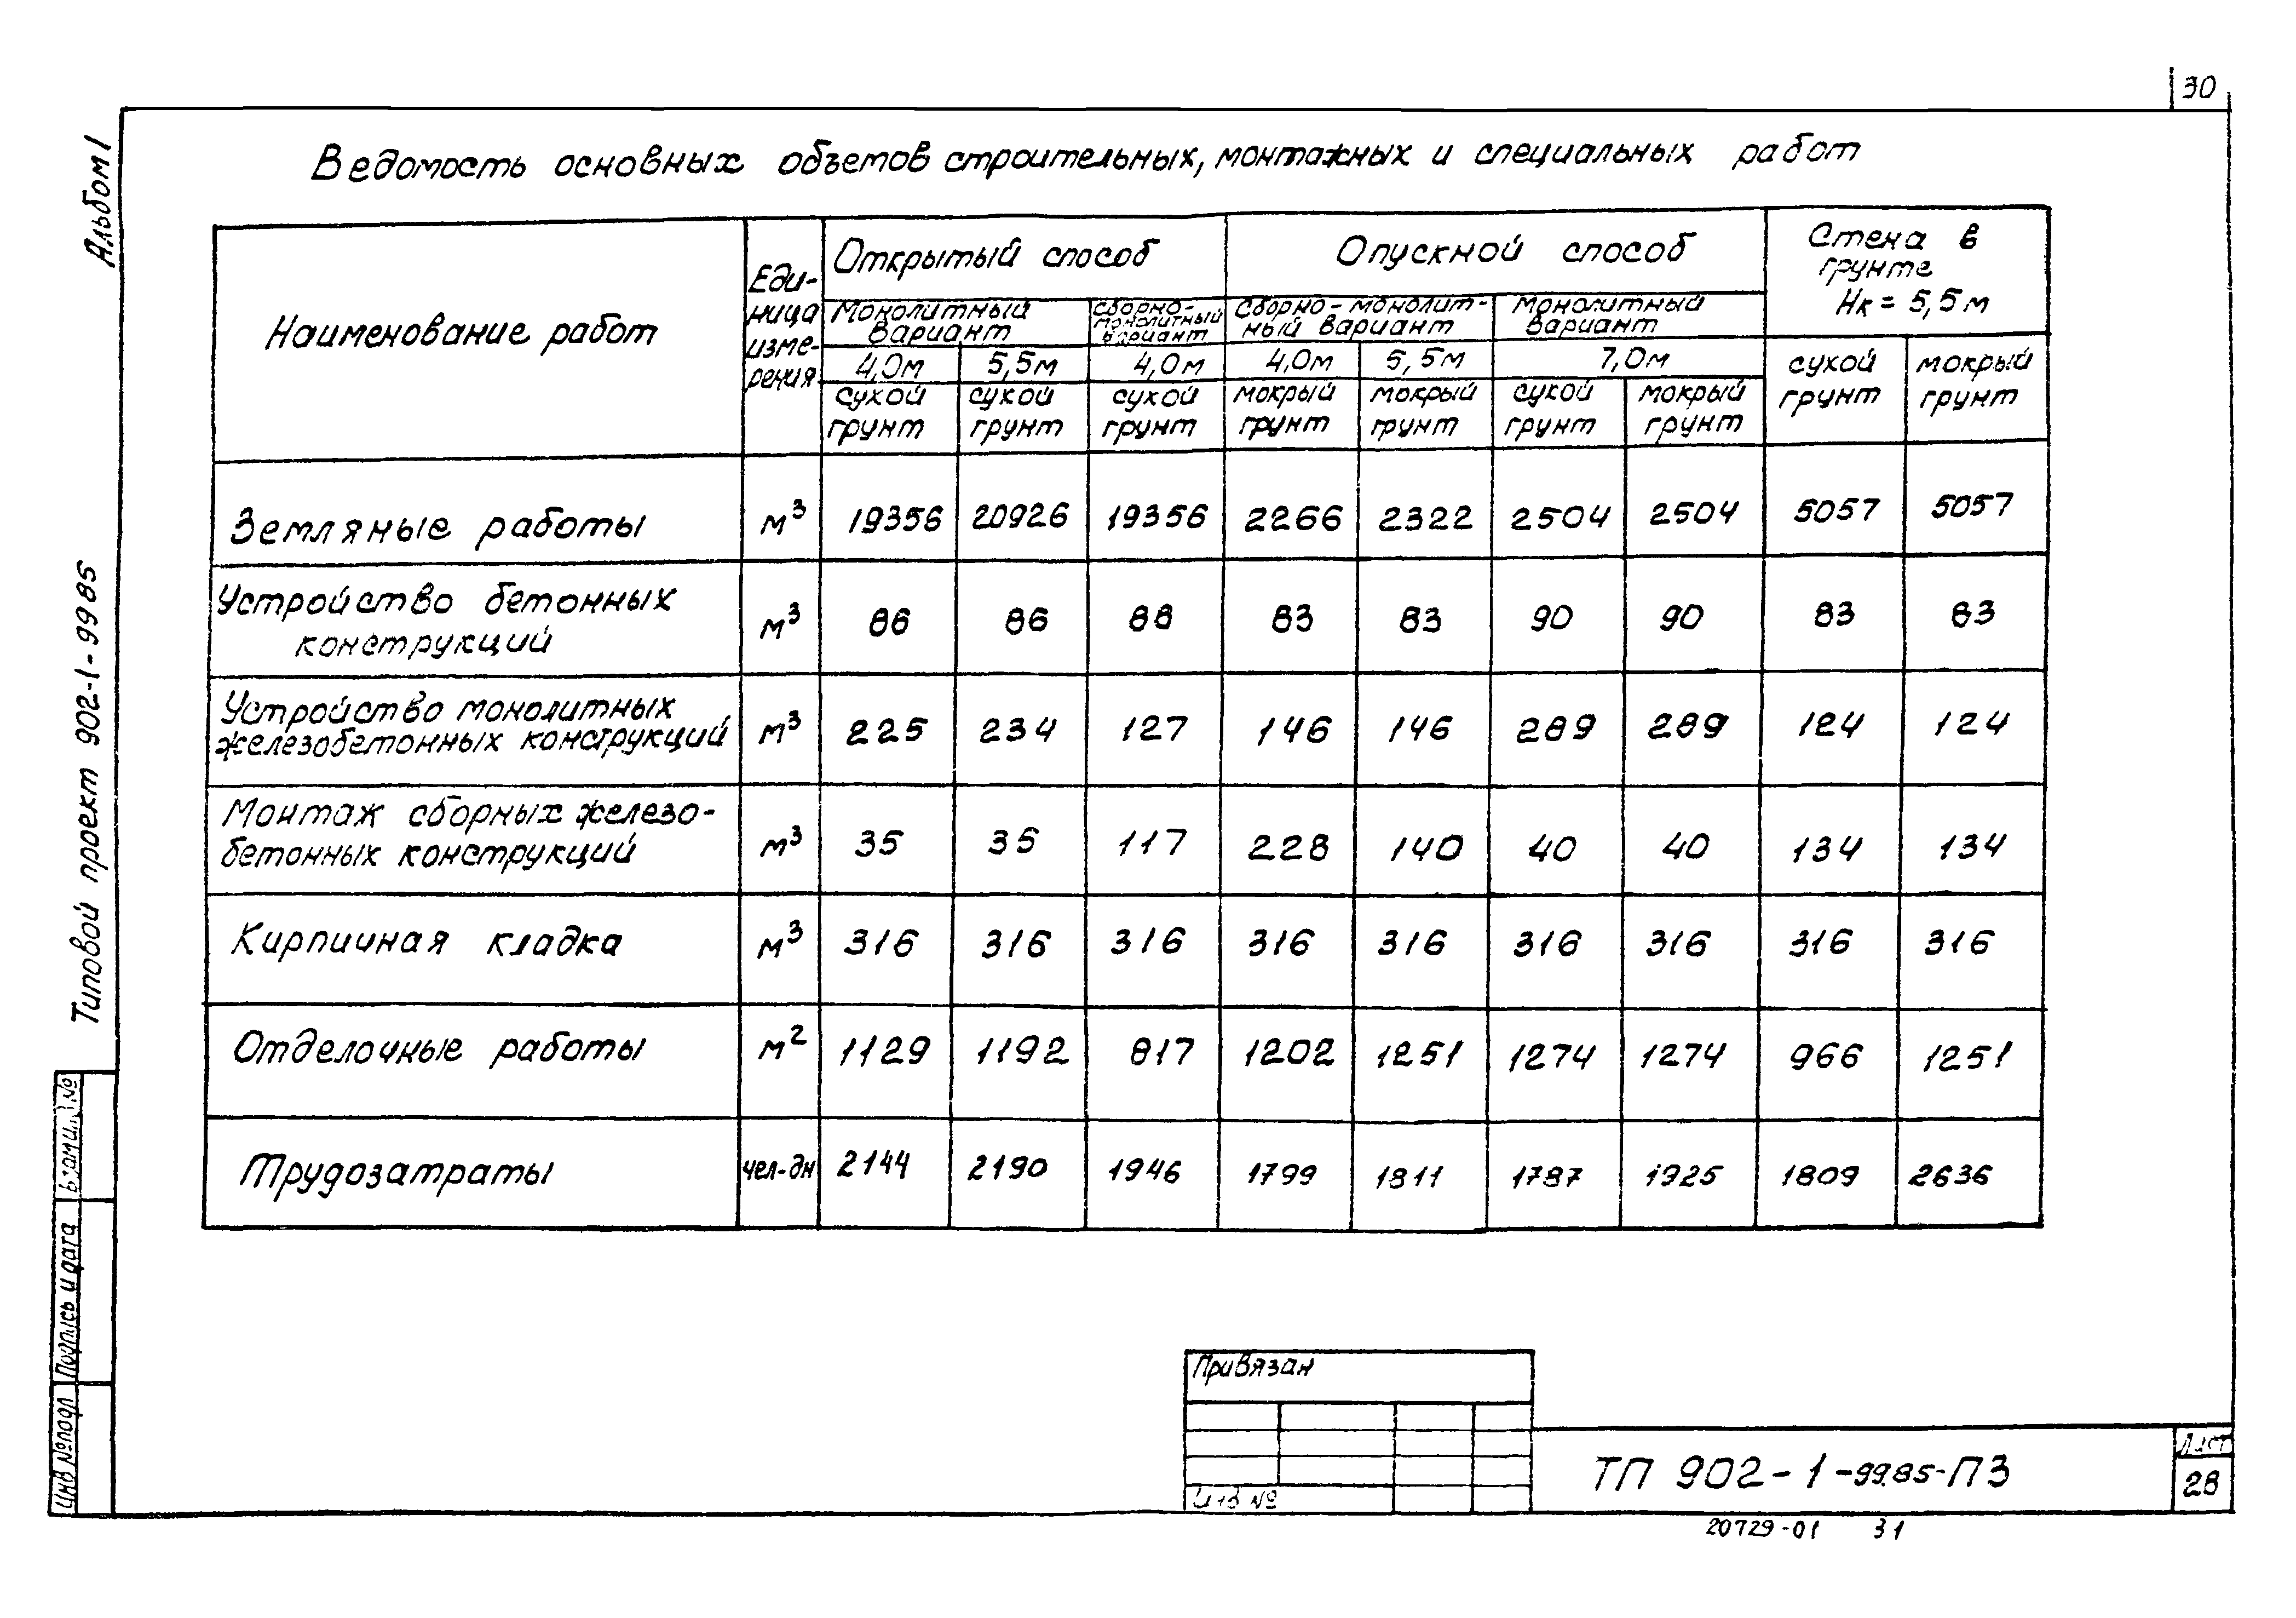 30
Альбом 1
Типовой проект 902-1-99 85
Ведомость основных объемов строительных, монтажных и специальных работ
Наименование работ
Еди-
ница
изме-
рения
Открытый способ
Опускной способ
Стена в
грунте
Нк = 5,5 м
Монолитный
вариант
Сборно-
монолитный
вариант
Сборно-монолит-
ный вариант
Монолитный
вариант
4,0м 5,5м 4,0м 4,0м 5,5м 7,0м
сухой грунт
сухой грунт
сухой грунт
мокрый грунт
мокрый грунт
сухой грунт
мокрый грунт
сухой грунт
мокрый грунт
Земляные работы м3 19356 20926 19356 2266 2322 2504 2504 5057 5057
Устройство бетонных
конструкций м3 86 86 88 83 83 90 90 83 83
Устройство монолитных
железобетонных конструкций м3 225 234 127 146 146 289 289 124 124
Монтаж сборных железо-
бетонных конструкций м3 35 35 117 228 140 40 40 134 134
Кирпичная кладка м3 316 316 316 316 316 316 316 316 316
Отделочные работы м2 1129 1192 817 1202 1251 1274 1274 966 1251
Трудозатраты чел-дн 2144 2190 1946 1799 1811 1787 1925 1809 2636
Подпись и дата
Инв №подл
Привязан
Инв №
ТП 902-1-99.85-ПЗ
Лист
28
20729-01 31